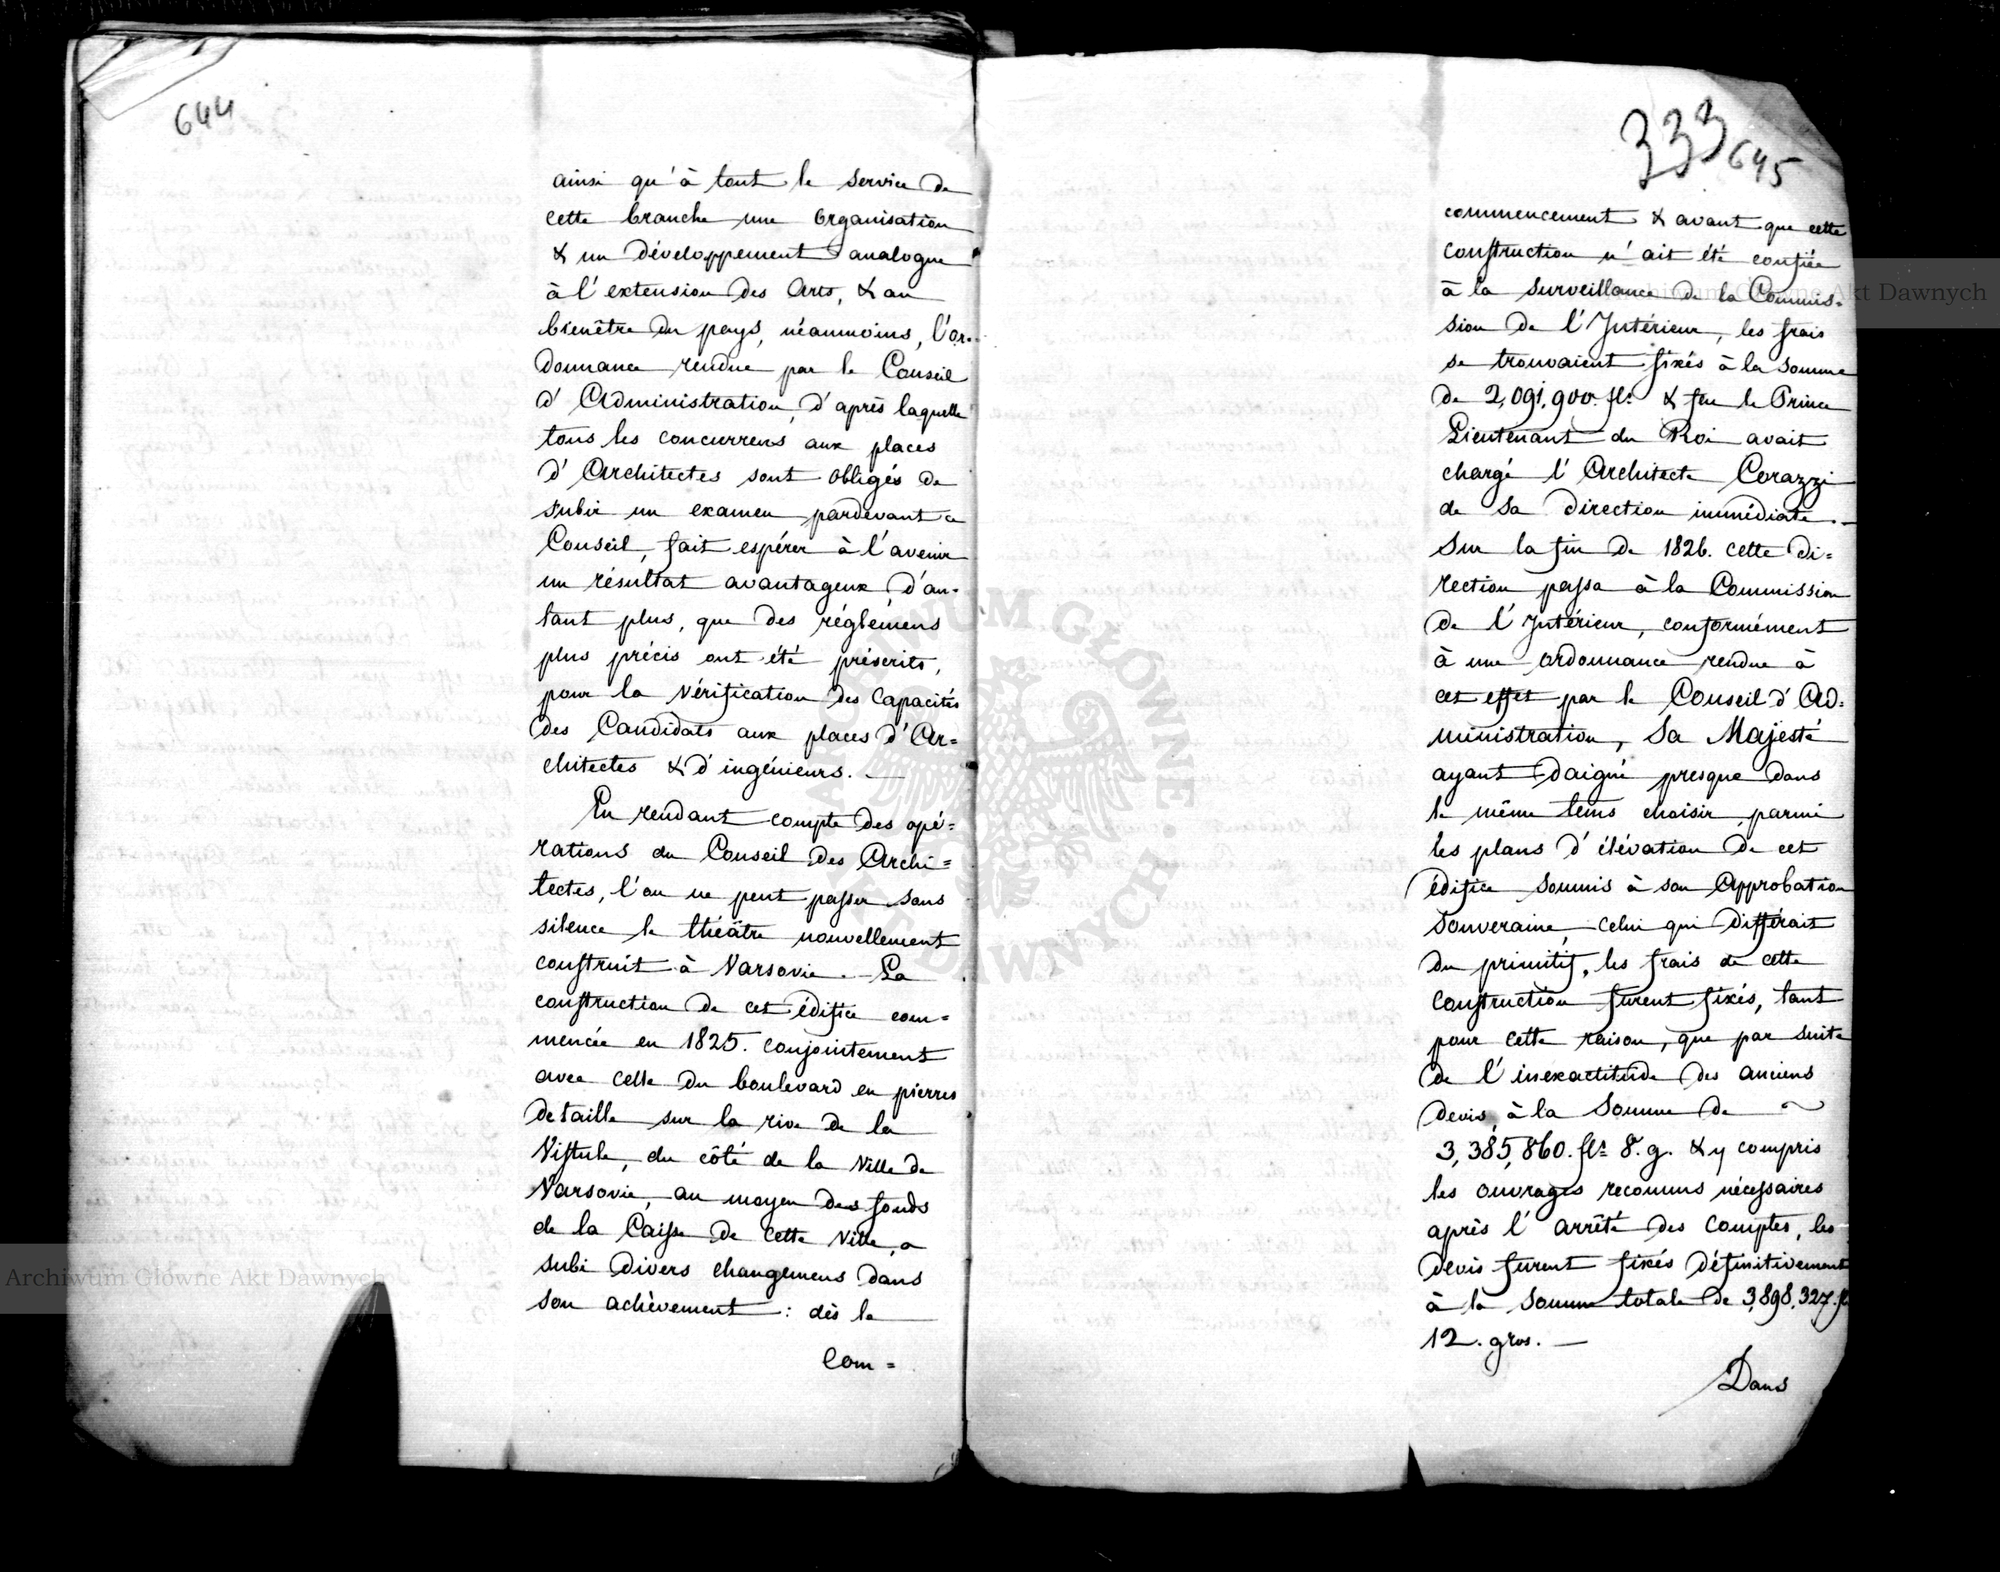 644
ainsi qu'à tout le service de
cette branche une organisation
& un développement analogue
à l'extension des Arts, & au
bienêtre du pays, néanmoins, l'or-
donnance rendue par le Conseil
d'Administration, d'après laquelle
tous les concurrens aux places
d'Architectes sont obligés de
subir un examen pardevant ce
Conseil, fait espérer à l'avenir
un résultat avantageux, d'au-
tant plus, que des réglémens
plus précis ont été préscrits,
pour la vérification des capacités
des Candidats aux places d'Ar=
chitectes & d'ingénieurs. —
En rendant compte des opé=
rations du Conseil des Archi=
tectes, l'on ne peut passer sous
silence le théâtre nouvellement
construit à Varsovie. — La
construction de cet édifice com=
mencée en 1825. conjointement
avec celle du boulevard en pierres
de taille sur la rive de la
Vistule, du côté de la Ville de
Varsovie, au moyen des fonds
de la Caisse de cette Ville, a
subi divers changemens dans
son achèvement : dès le
Com =
333
645
commencement & avant que cette
construction n'ait été confiée
à la surveillance de la Commis=
sion de l'Intérieur, les frais
se trouvaient fixés à la somme
de 2,091,900. fl: & feu le Prince
Lieutenant du Roi avait
chargé l'Architecte Corazzi
de sa direction immédiate. —
Sur la fin de 1826. cette di=
rection passa à la Commission
de l'Intérieur, conformément
à une ordonnance rendue à
cet effet par le Conseil d'Ad=
ministration, Sa Majesté
ayant daigné presque dans
le même tems choisir, parmi
les plans d'élévation de cet
édifice soumis à son Approbation
Souveraine, celui qui différait
du primitif, les frais de cette
construction furent fixés, tant
pour cette raison, que par suite
de l'inexactitude des anciens
devis, à la Somme de ~
3,385,860. fl: 8. g. & y compris
les ouvrages reconnus nécessaires
après l'arrêté des comptes, les
devis furent fixés définitivement
à la somme totale de 3,898,327. fl
12. gros. —
Dans
Archiwum Główne Akt Dawnych
Archiwum Główne Akt Dawnych
ARCHIWUM GŁÓWNE AKT DAWNYCH